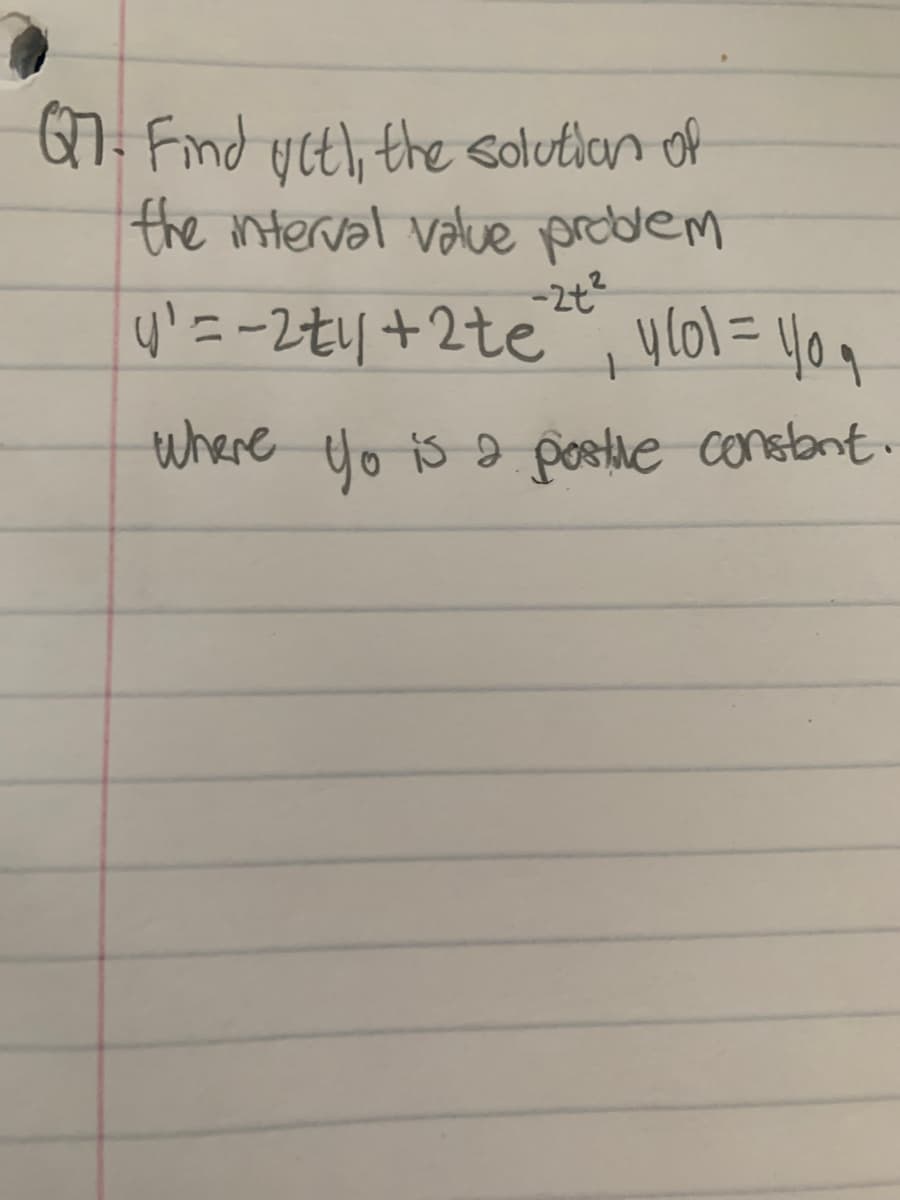 Q7. Find y(t), the solution of
the interval value problem
y' = -2ty + 2te^-2t², y(0) = y0,
where y0 is a postive constant.